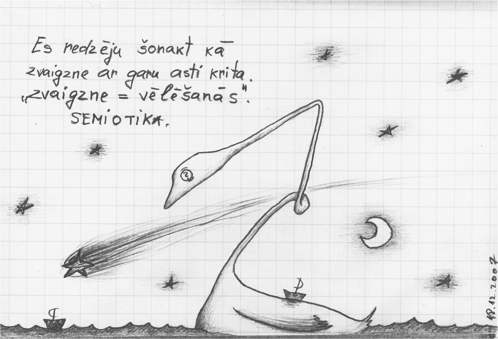 Es redzēju šonakt kā
zvaigzne ar garu asti krita.
„zvaigzne = vēlēšanās".
SEMIOTIKA.
19.12.2007